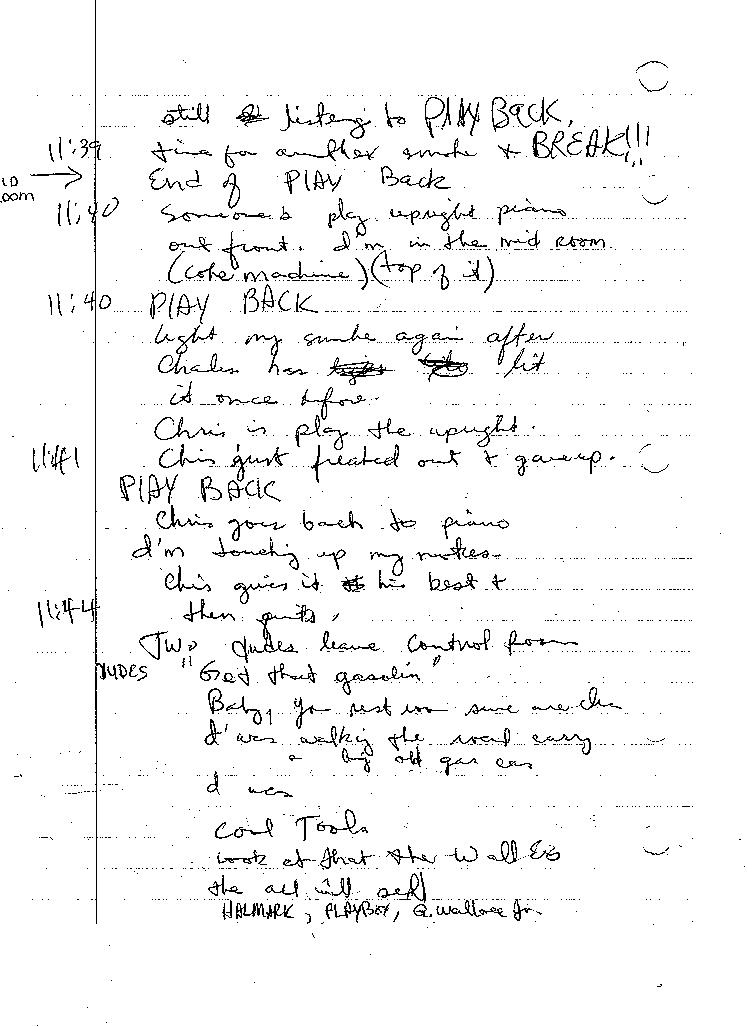 still listeng to PLAY BACK,
11:39 time for another smoke + BREAK!!!
End of PLAY Back
11:40 Someone's play upright piano
out front. I'm in the mid room
(coke machine) (top of it)
11:40 PLAY BACK
light my smoke again after
Charles has lit
it once before.
Chris is play the upright.
11:41 Chis just freaked out + gave up.
PLAY BACK
Chris goes back to piano
I'm touching up my notes.
Chis gives it his best +
11:44 then quits,
Two dudes leave Control Room
DUDES "Get that gasolin"
Baby, your rest room sure are
I was walking the road carry
a big old gas can
I was
Cool Tools
Look at that the Wall
the all will sell
HALMARK, PLAYBOY, G. Wallace Jr.